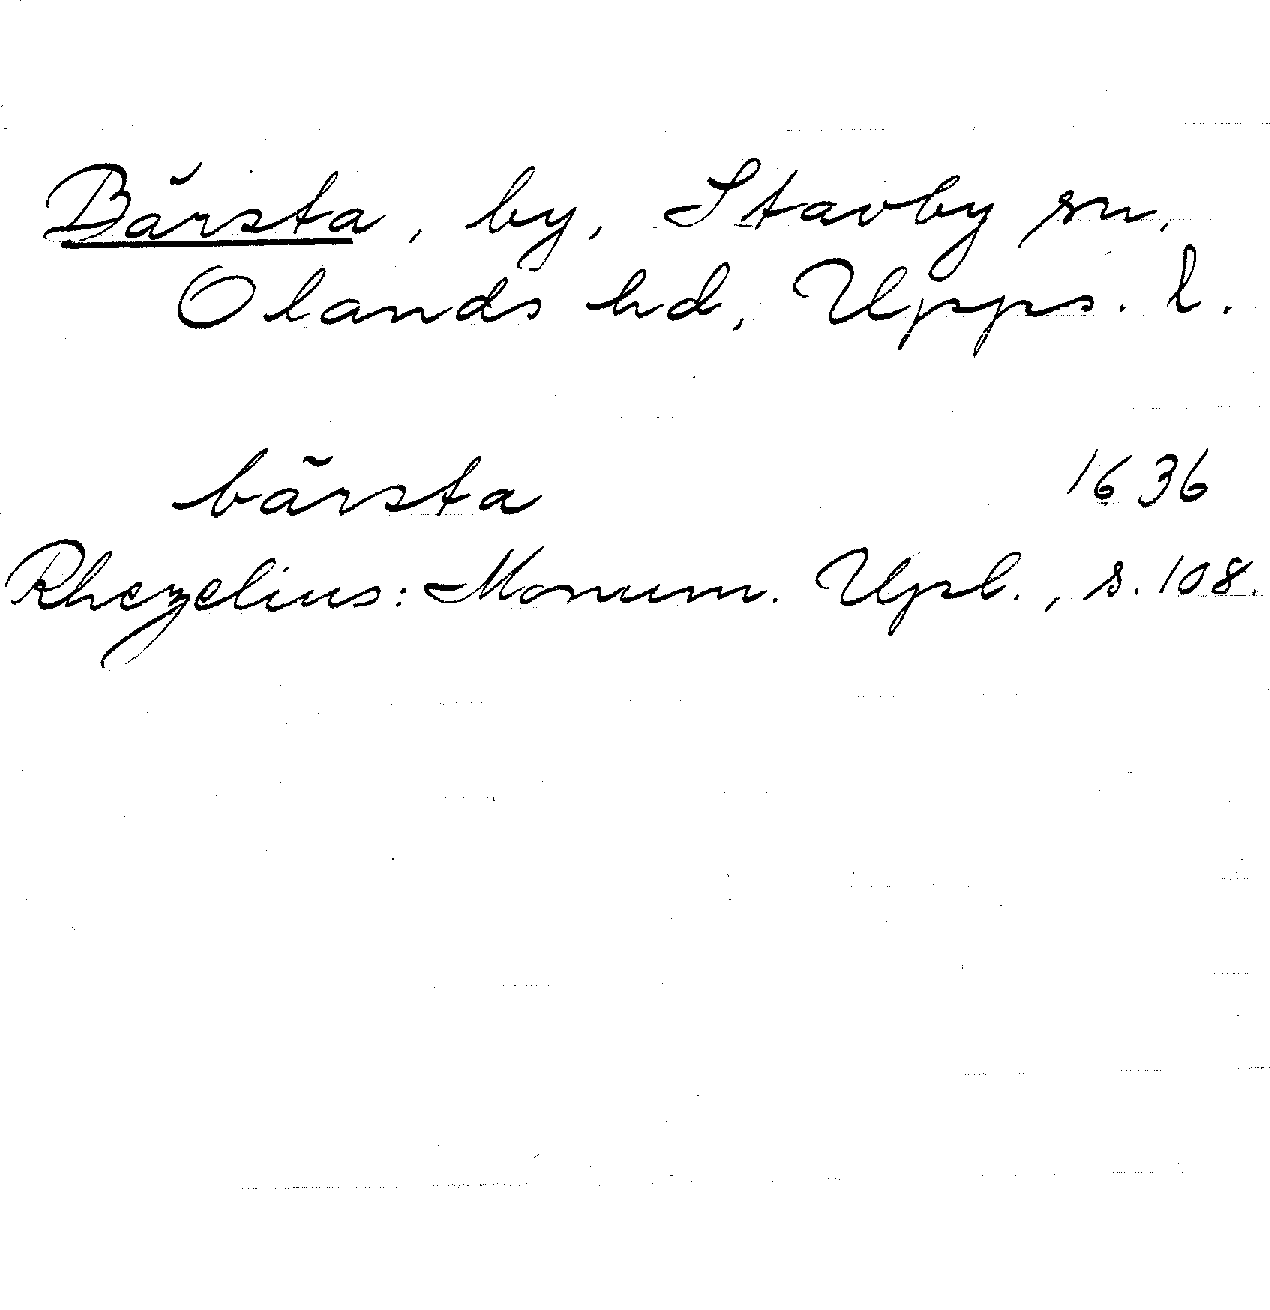 Bärsta, by, Stavby sn,
Olands hd, Upps. l.
bärsta 1636
Rhezelius: Monum. Upl., s. 108.